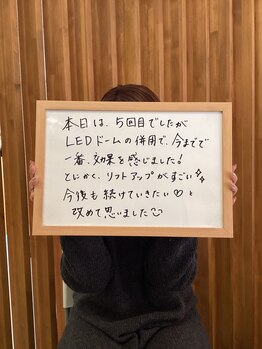 本日は、5回目でしたが
LEDドームの併用で、今までで
一番、効果を感じました!
とにかく、リフトアップがすごい✨
今後も続けていきたい♡と
改めて思いました